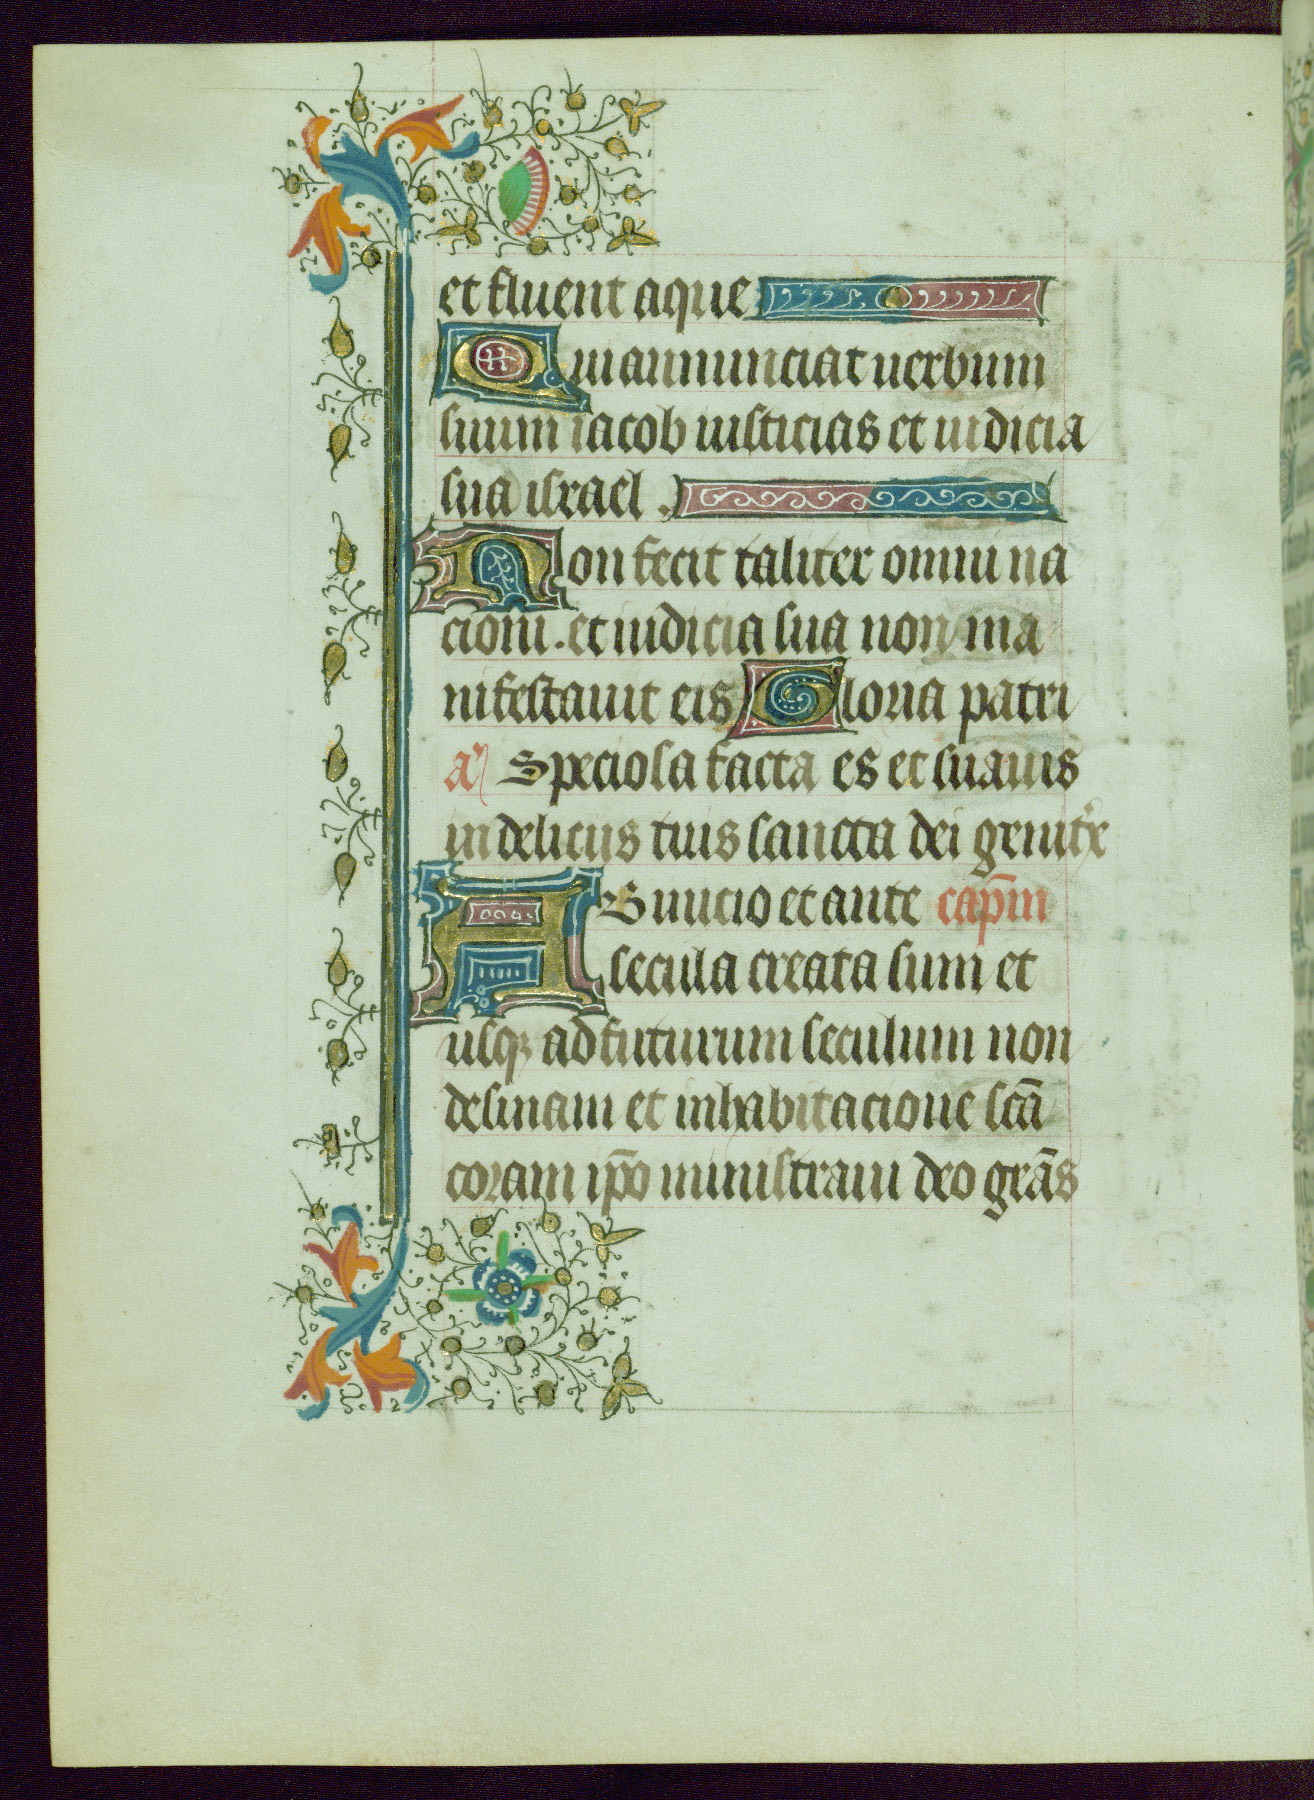 et fluent aque
Qui annunciat uerbum
suum iacob iusticias et iudicia
sua israel .
Non fecit taliter omni na
cioni . et iudicia sua non ma
nifestauit eis Gloria patri
a᷎ Speciosa facta es et suauis
in deliciis tuis sancta dei genitͥx
AB inicio et ante cap̄m
secula creata sum et
usqꝫ ad futurum seculum non
desinam et inhabitacione sc̄a
coram ip̄o ministraui deo gr̄as